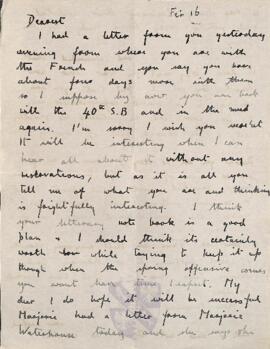 Feb 16
Dearest
I had a letter from you yesterday
evening from where you are with
the French and you say you have
about four days more with them
so I suppose by now you are back
with the 40th S.B and in the mud
again. I'm sorry I wish you weren't
It will be interesting when I can
hear all about it without any
reservations, but as it is all you
tell me of what you are and thinking
is frightfully interesting. I think
your literary note book is a good
plan & I should think its certainly
worth while trying to keep it up
though when the spring offensive comes
you wont have time I expect. My
dear I do hope it will be successful
Marjorie had a letter from Marjorie
Waterhouse today and she says she